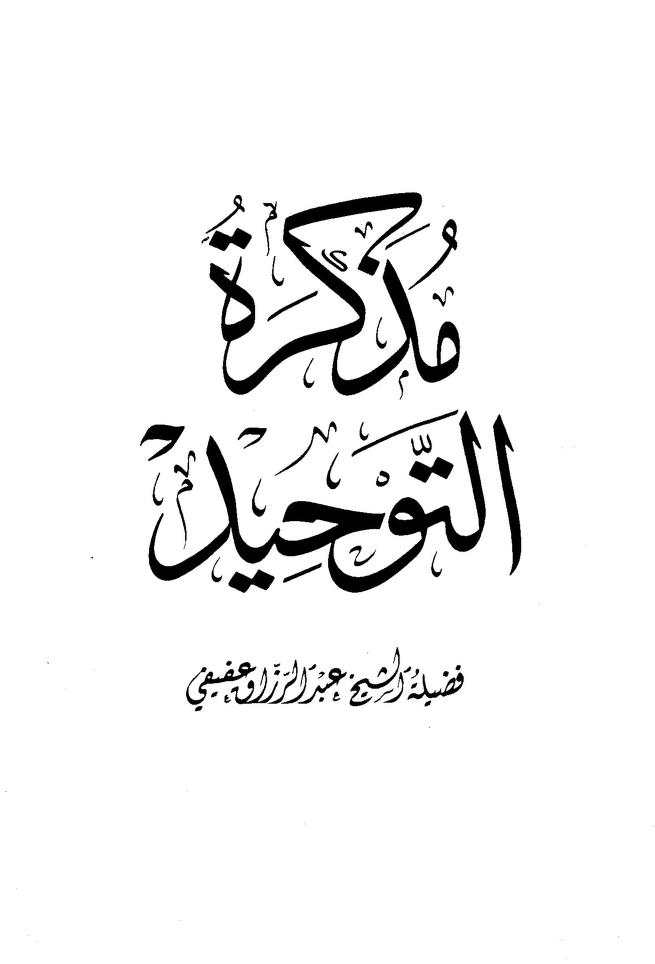 مُذَكرَةُ
التَّوْحِيْدِ
فضيلة الشيخ عبد الرزاق عفيفي